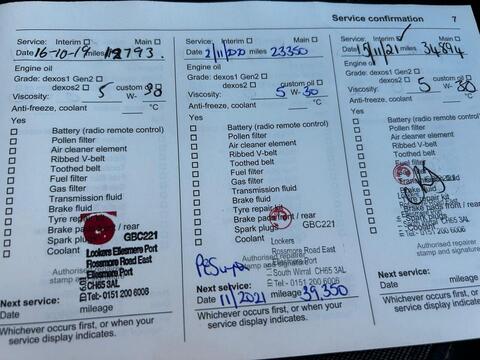 Service confirmation 7
Service: Interim Main
Date 16-10-19 miles 12793.
Engine oil
Grade: dexos1 Gen2
dexos2 custom oil
Viscosity: 5 W- 30
Anti-freeze, coolant °C
Yes
Battery (radio remote control)
Pollen filter
Air cleaner element
Ribbed V-belt
Toothed belt
Fuel filter
Gas filter
Transmission fluid
Brake fluid
Tyre repair kit
Brake pads front / rear
Spark plugs
Coolant
GBC221
Lookers Ellesmere Port
Rossmore Road East
Ellesmere Port
CH65 3AL
Tel:- 0151 200 6006
Authorised repairer
stamp and signature
Next service:
Date mileage
Whichever occurs first, or when your
service display indicates.
Service: Interim Main
Date 2/11/2020 miles 23350
Engine oil
Grade: dexos1 Gen2
dexos2 custom oil
Viscosity: 5 W- 30
Anti-freeze, coolant °C
Yes
Battery (radio remote control)
Pollen filter
Air cleaner element
Ribbed V-belt
Toothed belt
Fuel filter
Gas filter
Transmission fluid
Brake fluid
Tyre repair kit
Brake pads front / rear
Spark plugs GBC221
Coolant
Lookers
Rossmore Road East
South Wirral CH65 3AL
Tel:- 0151 200 6006
Authorised repairer
stamp and signature
Next service:
Date 11/2021 mileage 39,350
Whichever occurs first, or when your
service display indicates.
Service: Interim Main
Date 15/11/21 miles 34894
Engine oil
Grade: dexos1 Gen2
dexos2 custom oil
Viscosity: 5 W- 30
Anti-freeze, coolant °C
Yes
Battery (radio remote control)
Pollen filter
Air cleaner element
Ribbed V-belt
Toothed belt
Fuel filter
Brake pads front / rear
Spark plugs
Coolant
CH65 3AL
0151 200 6006
Authorised repairer
stamp and signature
Next service:
Date mileage
Whichever occurs first, or when your
service display indicates.